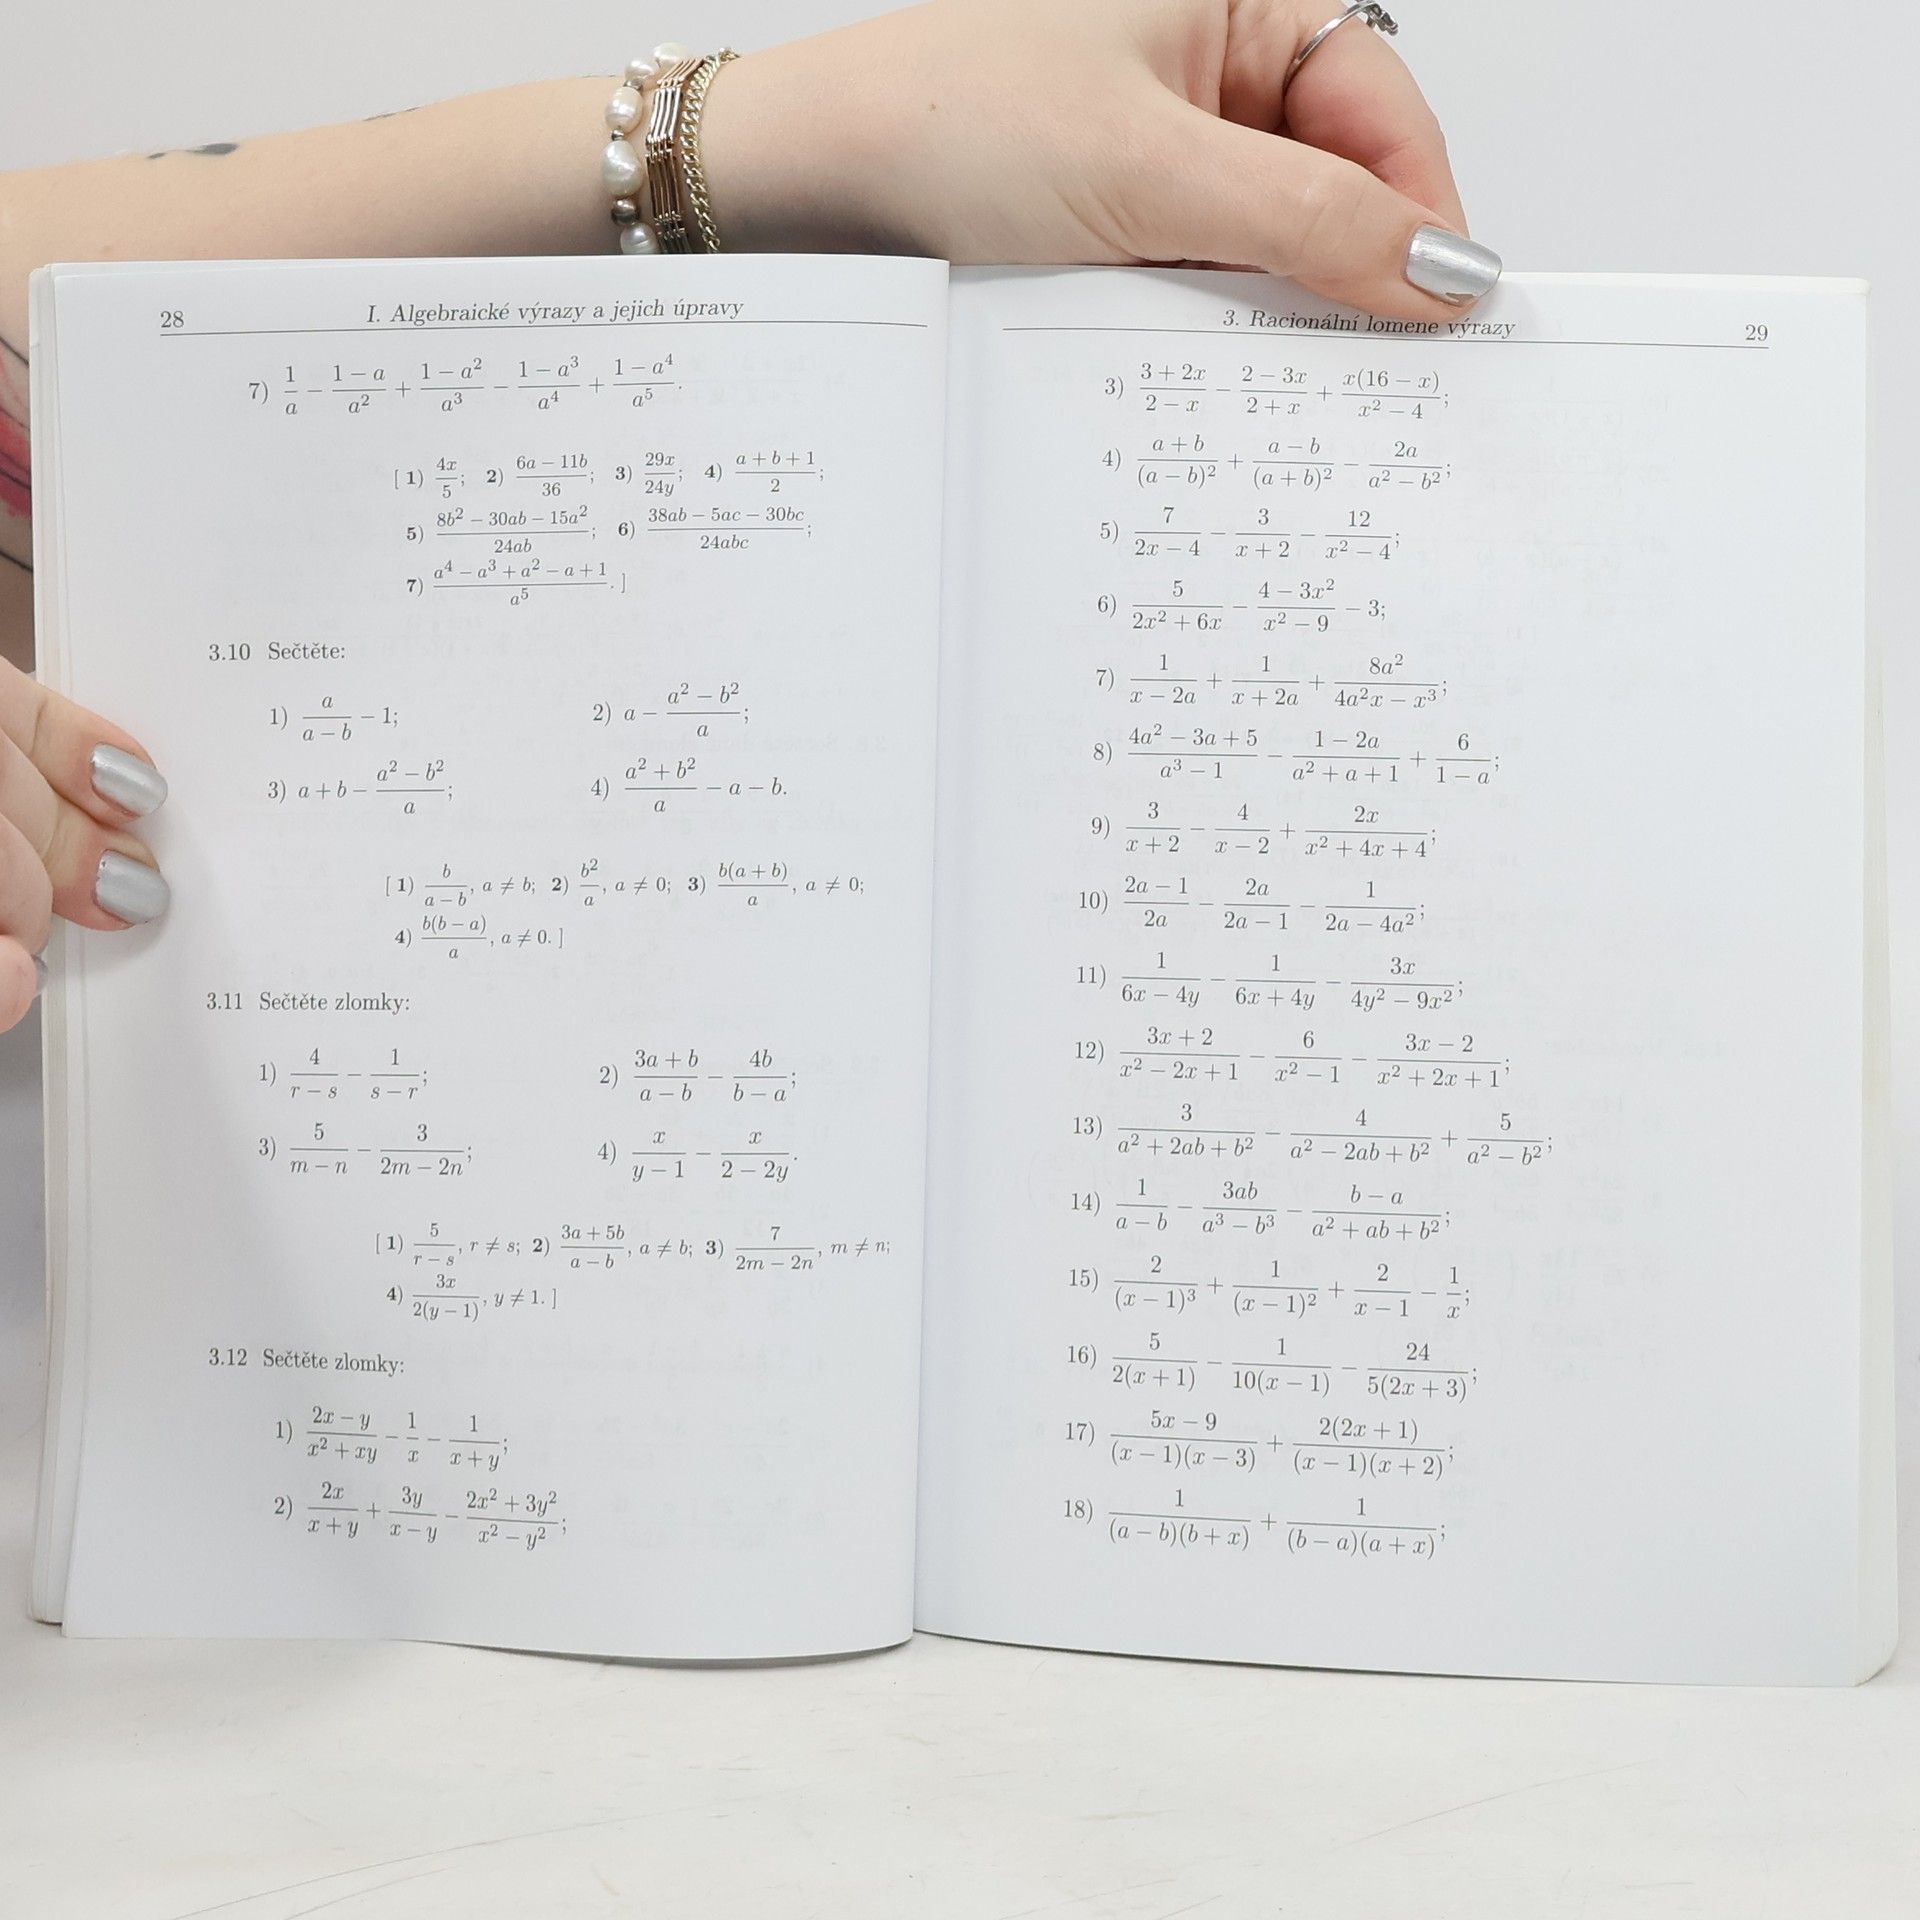 28 I. Algebraické výrazy a jejich úpravy
7) \frac{1}{a} - \frac{1-a}{a^2} + \frac{1-a^2}{a^3} - \frac{1-a^3}{a^4} + \frac{1-a^4}{a^5}.
[ 1) \frac{4x}{5}; 2) \frac{6a-11b}{36}; 3) \frac{29x}{24y}; 4) \frac{a+b+1}{2};
5) \frac{8b^2-30ab-15a^2}{24ab}; 6) \frac{38ab-5ac-30bc}{24abc};
7) \frac{a^4-a^3+a^2-a+1}{a^5}. ]
3.10 Sečtěte:
1) \frac{a}{a-b} - 1; 2) a - \frac{a^2-b^2}{a};
3) a + b - \frac{a^2-b^2}{a}; 4) \frac{a^2+b^2}{a} - a - b.
[ 1) \frac{b}{a-b}, a ≠ b; 2) \frac{b^2}{a}, a ≠ 0; 3) \frac{b(a+b)}{a}, a ≠ 0;
4) \frac{b(b-a)}{a}, a ≠ 0. ]
3.11 Sečtěte zlomky:
1) \frac{4}{r-s} - \frac{1}{s-r}; 2) \frac{3a+b}{a-b} - \frac{4b}{b-a};
3) \frac{5}{m-n} - \frac{3}{2m-2n}; 4) \frac{x}{y-1} - \frac{x}{2-2y}.
[ 1) \frac{5}{r-s}, r ≠ s; 2) \frac{3a+5b}{a-b}, a ≠ b; 3) \frac{7}{2m-2n}, m ≠ n;
4) \frac{3x}{2(y-1)}, y ≠ 1. ]
3.12 Sečtěte zlomky:
1) \frac{2x-y}{x^2+xy} - \frac{1}{x} - \frac{1}{x+y};
2) \frac{2x}{x+y} + \frac{3y}{x-y} - \frac{2x^2+3y^2}{x^2-y^2};
3. Racionální lomené výrazy 29
3) \frac{3+2x}{2-x} - \frac{2-3x}{2+x} + \frac{x(16-x)}{x^2-4};
4) \frac{a+b}{(a-b)^2} + \frac{a-b}{(a+b)^2} - \frac{2a}{a^2-b^2};
5) \frac{7}{2x-4} - \frac{3}{x+2} - \frac{12}{x^2-4};
6) \frac{5}{2x^2+6x} - \frac{4-3x^2}{x^2-9} - 3;
7) \frac{1}{x-2a} + \frac{1}{x+2a} + \frac{8a^2}{4a^2x-x^3};
8) \frac{4a^2-3a+5}{a^3-1} - \frac{1-2a}{a^2+a+1} + \frac{6}{1-a};
9) \frac{3}{x+2} - \frac{4}{x-2} + \frac{2x}{x^2+4x+4};
10) \frac{2a-1}{2a} - \frac{2a}{2a-1} - \frac{1}{2a-4a^2};
11) \frac{1}{6x-4y} - \frac{1}{6x+4y} - \frac{3x}{4y^2-9x^2};
12) \frac{3x+2}{x^2-2x+1} - \frac{6}{x^2-1} - \frac{3x-2}{x^2+2x+1};
13) \frac{3}{a^2+2ab+b^2} - \frac{4}{a^2-2ab+b^2} + \frac{5}{a^2-b^2};
14) \frac{1}{a-b} - \frac{3ab}{a^3-b^3} - \frac{b-a}{a^2+ab+b^2};
15) \frac{2}{(x-1)^3} + \frac{1}{(x-1)^2} + \frac{2}{x-1} - \frac{1}{x};
16) \frac{5}{2(x+1)} - \frac{1}{10(x-1)} - \frac{24}{5(2x+3)};
17) \frac{5x-9}{(x-1)(x-3)} + \frac{2(2x+1)}{(x-1)(x+2)};
18) \frac{1}{(a-b)(b+x)} + \frac{1}{(b-a)(a+x)};